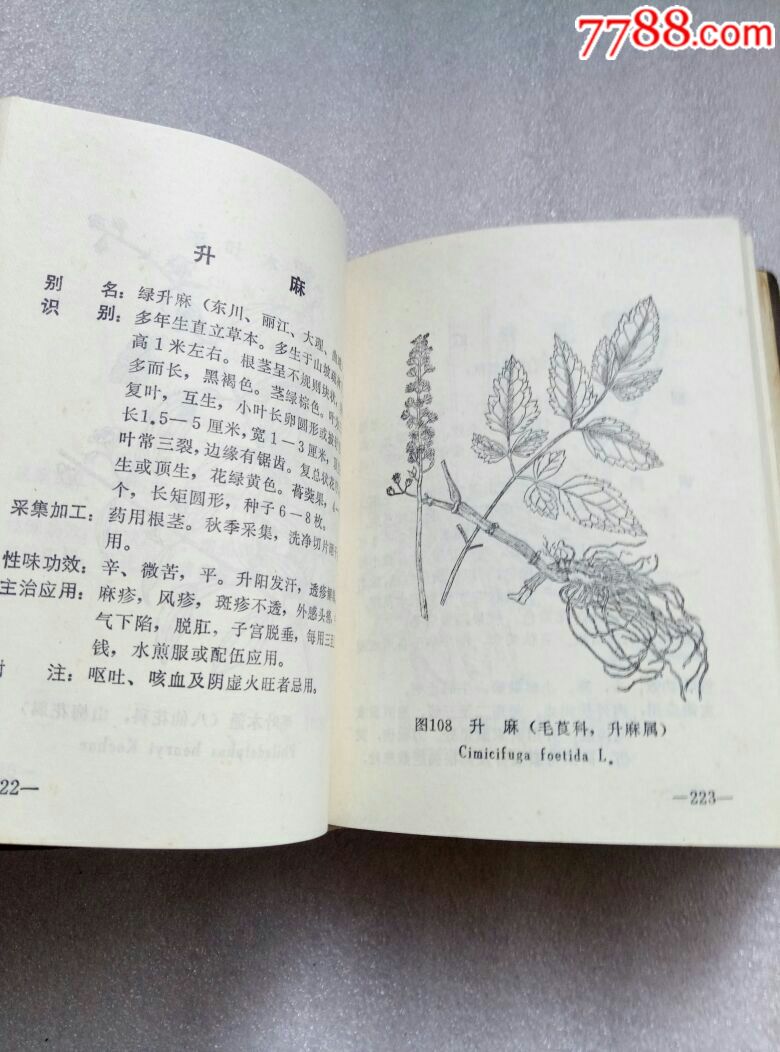 7788.com
升麻
别名：绿升麻（东川、丽江、大理、曲
识别：多年生直立草本。多生于山坡
高1米左右。根茎呈不规则块状，
多而长，黑褐色。茎绿棕色。叶
复叶，互生，小叶长卵圆形或披
长1.5—5厘米，宽1—3厘米，
叶常三裂，边缘有锯齿。复总状花
生或顶生，花绿黄色。蓇葖果，4—
个，长矩圆形，种子6—8枚。
采集加工：药用根茎。秋季采集，洗净切片晒干
用。
性味功效：辛、微苦，平。升阳发汗，透疹解
主治应用：麻疹，风疹，斑疹不透，外感头痛，
气下陷，脱肛，子宫脱垂，每用三至
钱，水煎服或配伍应用。
附注：呕吐、咳血及阴虚火旺者忌用。
22—
图108 升麻（毛茛科，升麻属）
Cimicifuga foetida L.
—223—